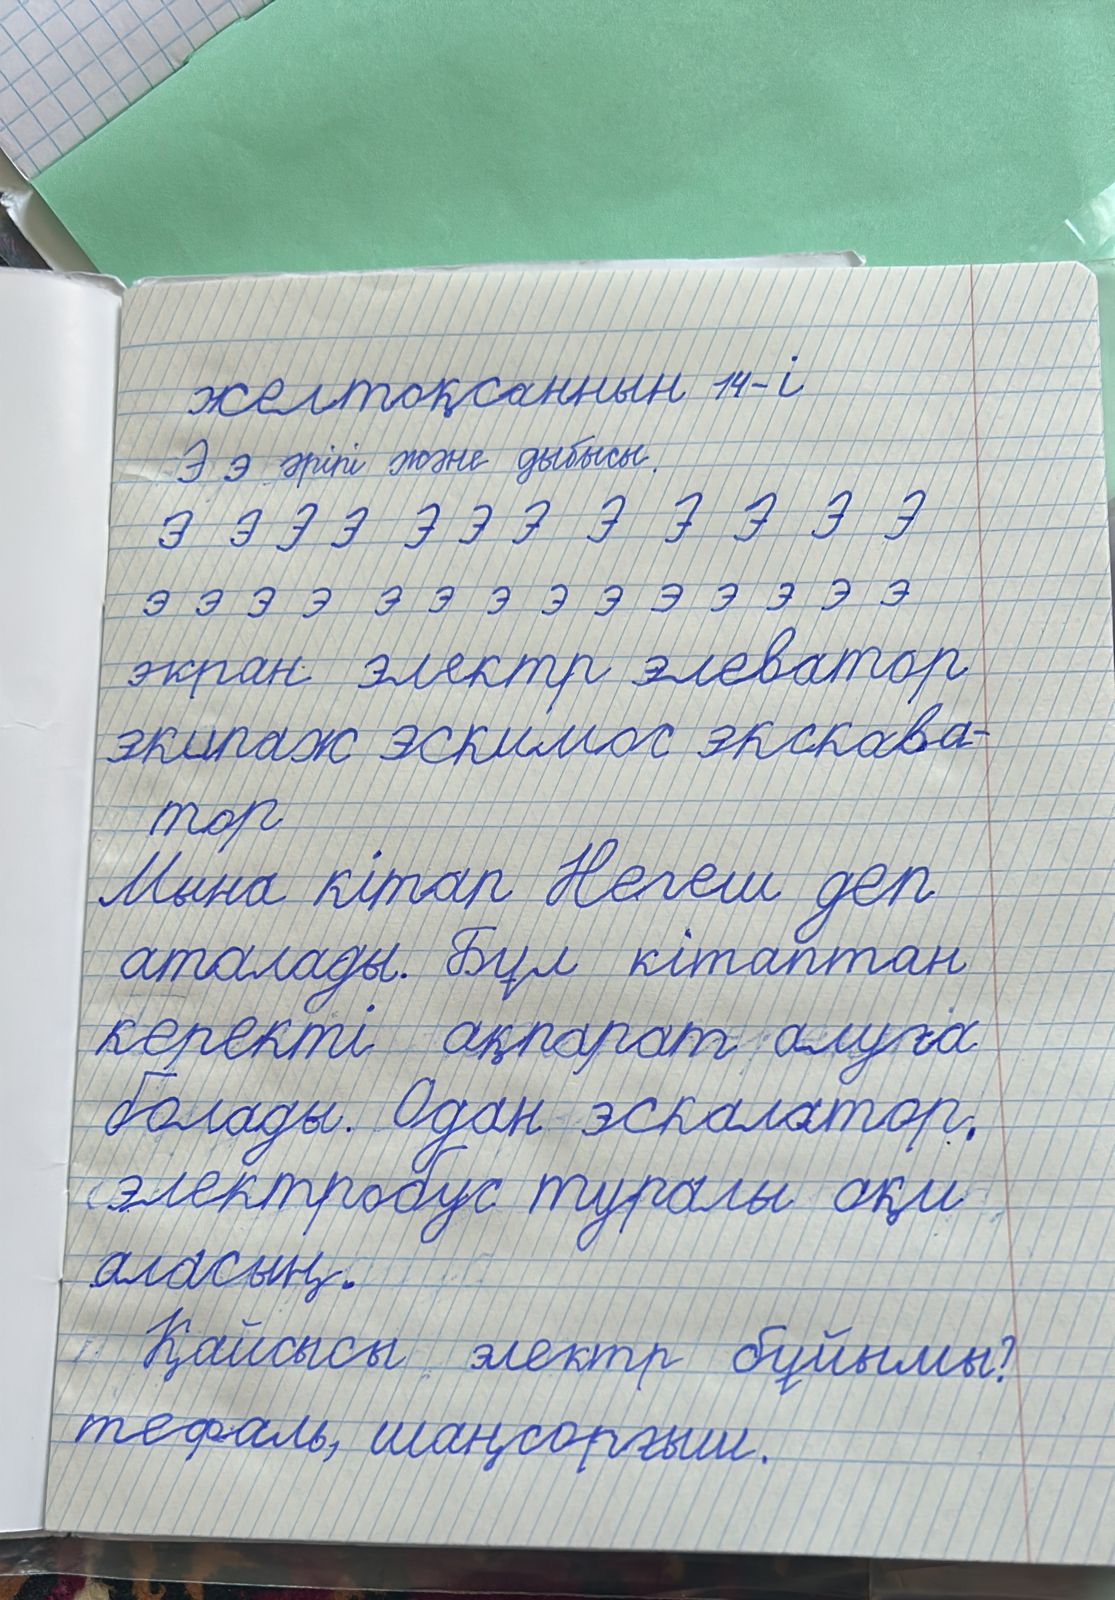 желтоқсаннын 14-і
Э э әріпі және дыбысы.
Э Э Э Э Э Э Э Э Э Э Э Э
э э э э э э э э э э э э э э
экран электр элеватор
экипаж эскимос экскава-
тор
Мына кітап Негеш деп
аталады. Бұл кітаптан
керекті ақпарат алуға
болады. Одан эскалатор,
электробус туралы оқи
аласың.
Қайсысы электр бұйымы?
тефаль, шаңсорғыш.